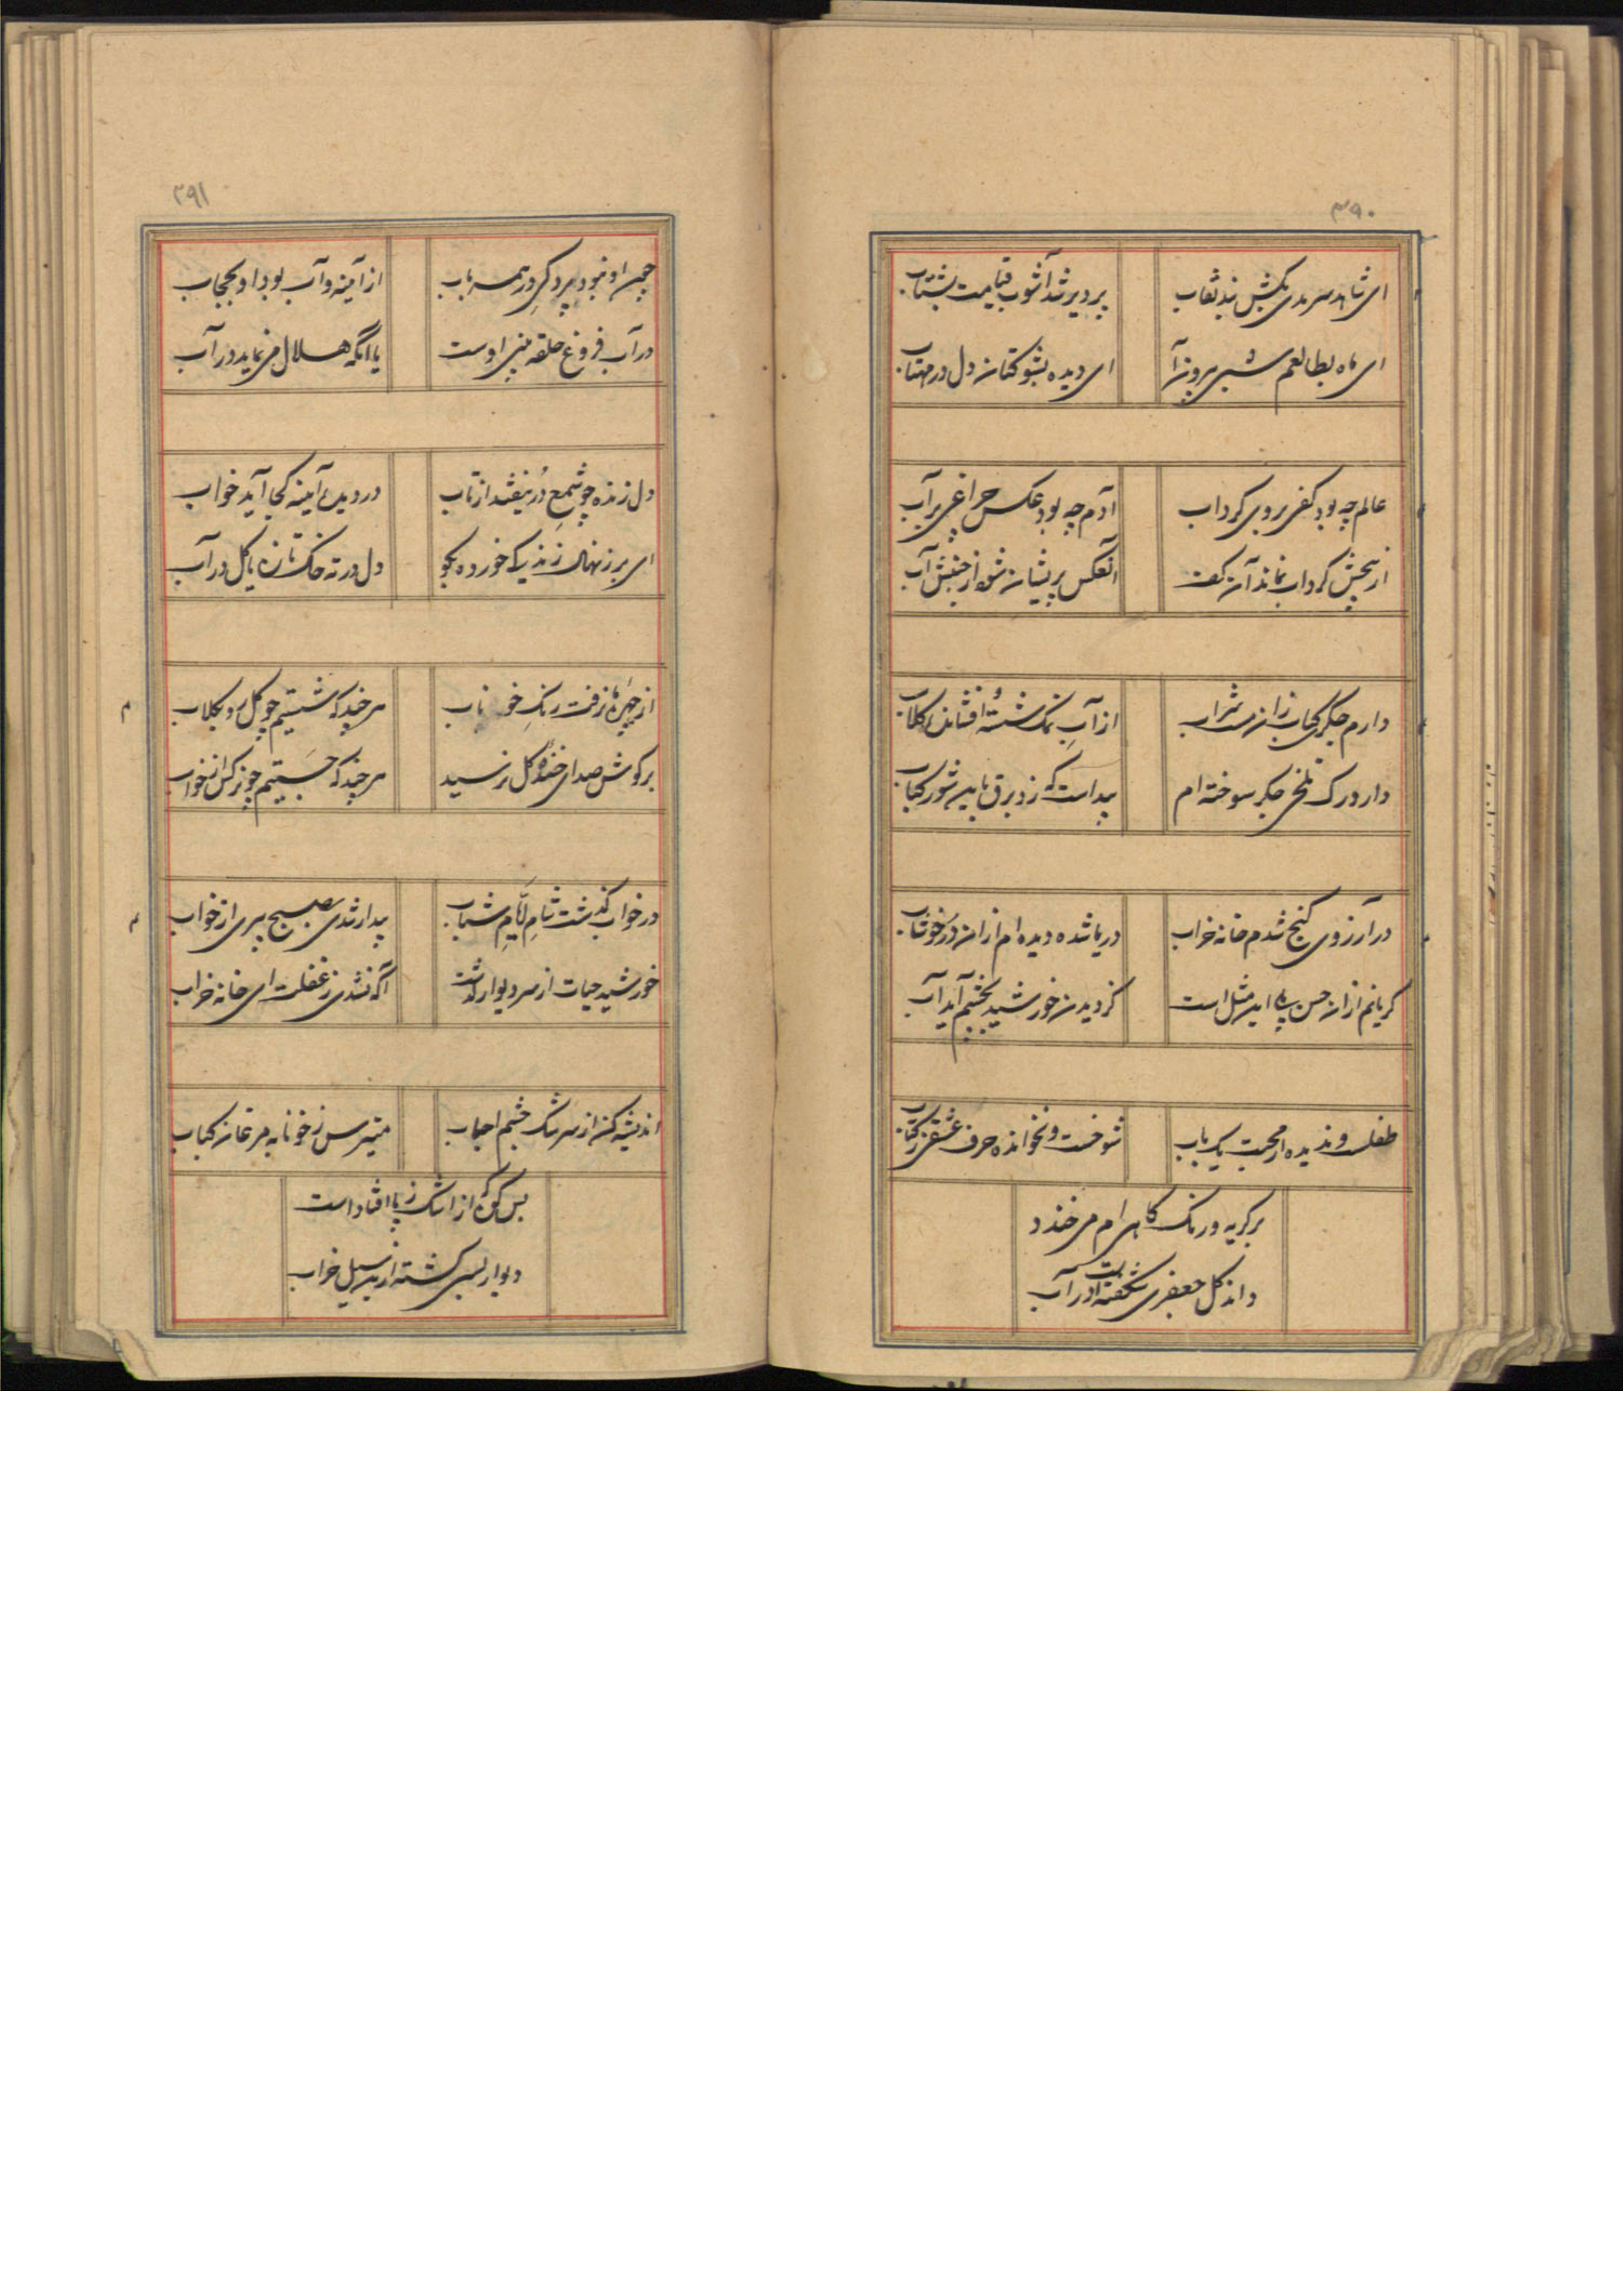 ۳۹۰
ای شاهد سرمدی بکش بند نقاب
پر دیر شد آشوب قیامت بشتاب
ای ماه بطالعم شبی بیرون آ
ای دیده بشو کتان دل در مهتاب
عالم چه بود کفی بروی گرداب
آدم چه بود عکس چراغی بر آب
از بخشش گرداب نماند آن کف
آنعکس پریشان شود از جنبش آب
دارم جگری کباب زان مست شراب
از آب نمک شسته افشانده گلاب
دارد رک تلخی جگر سوخته ام
پیداست که زد برق باین شور کباب
در آرزوی گنج شدم خانه خراب
دریا شده دیده ام ازان در خوشاب
گریانم ازان حسن بلی این مثل است
کز دیدن خورشید بچشم آید آب
طفلست و ندیده از محبت یک باب
شوخست و نخوانده حرف عشقی ز کتاب
بر گریه و رنگ کاهی ام می خندد
داند گل جعفری شکفتست در آب
۲۹۱
چین او نبود پردگی در همه باب
از آینه و آب بود او بحجاب
در آب فروغ حلقه بینی اوست
یا آنکه هلال می نماید در آب
دل زنده چو شمع در نیفتد از تاب
در دیده آیینه کجا آید خواب
ای برز نهال زندگی خورده بجو
دل در ته خاک تازه یا گل در آب
از چهره ما نرفت رنگ خوناب
هر چند که شستیم چو گل رو بگلاب
بر گوش صدای خنده گل نرسید
هر چند که جستیم چو نرگس از خواب
در خواب گذشت شام ایام شباب
بیدار شدی بصبح پیری از خواب
خورشید حیات از سر دیوار گذشت
آگه نشدی ز غفلت ای خانه خراب
اندیشه کن از سرشک چشم احباب
میترس ز خونابه مرغان کباب
بس کوه که از اشک ز پا افتاد است
دیوار بسی گشته ازین سیل خراب